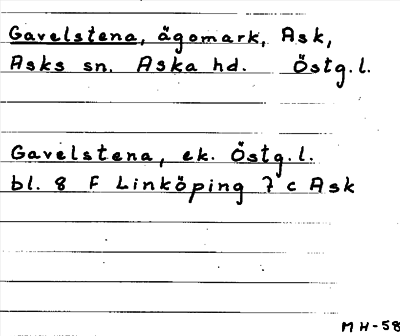 Gavelstena, ägomark, Ask,
Asks sn. Aska hd. Östg.l.
Gavelstena, ek. Östg.l.
bl. 8 F Linköping 7 c Ask
MH-58